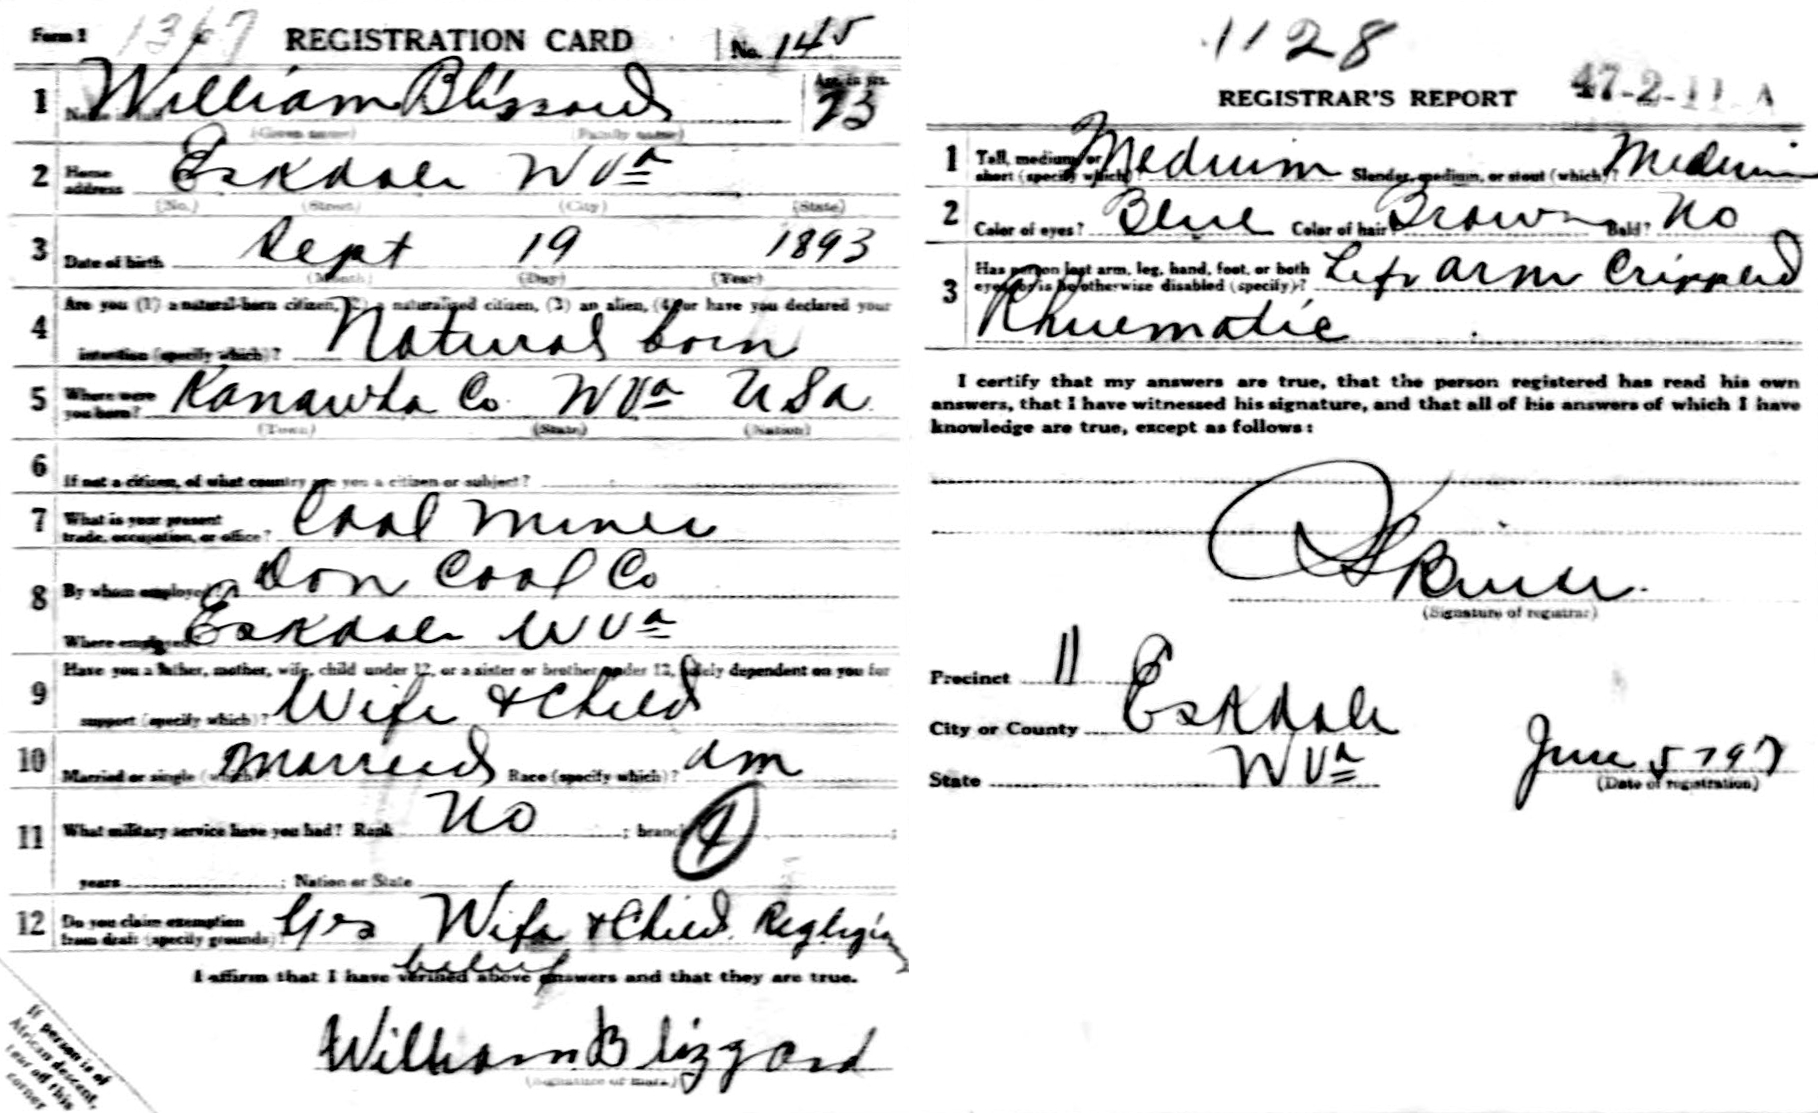 Form 1 1367 REGISTRATION CARD No. 145
1 William Blizzard Age, in yrs. 23
(Given name) (Family name)
2 Home address Eskdale W Va
(No.) (Street) (City) (State)
3 Date of birth Sept 19 1893
(Month) (Day) (Year)
4 Are you (1) a natural-born citizen, (2) a naturalized citizen, (3) an alien, (4) or have you declared your
intention (specify which)? Natural born
5 Where were you born? Kanawha Co. W Va USA
(Town) (State) (Nation)
6 If not a citizen, of what country are you a citizen or subject?
7 What is your present trade, occupation, or office? Coal Miner
8 By whom employed? Don Coal Co
Where employed? Eskdale W Va
9 Have you a father, mother, wife, child under 12, or a sister or brother under 12, solely dependent on you for
support (specify which)? Wife & Child
10 Married or single (which)? Married Race (specify which)? am
11 What military service have you had? Rank No ; branch ;
years ; Nation or State
12 Do you claim exemption from draft (specify grounds)? Yes Wife & Child. Regligin
belief
I affirm that I have verified above answers and that they are true.
William Blizzard
(Signature or mark)
If person is of
African descent,
tear off this
corner
1128
REGISTRAR'S REPORT 47-2-11-A
1 Tall, medium, or short (specify which)? Medium Slender, medium, or stout (which)? Medium
2 Color of eyes? Blue Color of hair? Brown Bald? No
3 Has person lost arm, leg, hand, foot, or both
eyes, or is he otherwise disabled (specify)? Left arm Crippled
Rhuematic
I certify that my answers are true, that the person registered has read his own
answers, that I have witnessed his signature, and that all of his answers of which I have
knowledge are true, except as follows:
(Signature of registrar)
Precinct 11
City or County Eskdale
State W Va June 5 1917
(Date of registration)